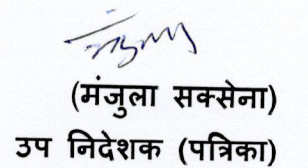 (मंजुला सक्सेना)
उप निदेशक (पत्रिका)